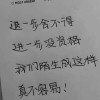 退一步舍不得
进一步没资格
我们两生成这样
真不容易！